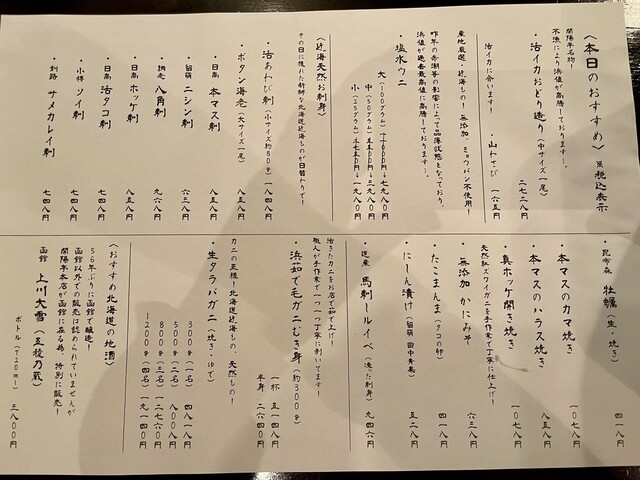 〈本日のおすすめ〉 ※税込表示
開陽亭名物!
不漁により浜値が高騰しております…。
・活イカおどり造り(中サイズ一尾) 二七二八円
活イカに合います!
・山わさび 一六五円
産地厳選・近海もの! 無添加・ミョウバン不使用!
昨年の赤潮等の影響によって品薄状態となっており、
浜値が過去最高値に高騰しております…。
・塩水ウニ
大(100グラム)
中(50グラム)
小(25グラム)
〈近海天然お刺身〉
その日に獲れた新鮮な北海道近海ものが日替わりで!
・活あわび刺(小サイズ約80g) 一八四八円
・ボタン海老(大サイズ一尾) 八五八円
・日高 本マス刺 八五八円
・留萌 ニシン刺 六三八円
・網走 八角刺 九六八円
・日高 ホッケ刺 八五八円
・日高 活タコ刺 七四八円
・小樽 ソイ刺 七四八円
・釧路 サメカレイ刺 七四八円
・昆布森 牡蠣(生・焼き) 四一八円
・本マスのカマ焼き 一〇七八円
・本マスのハラス焼き 八五八円
・真ホッケ開き焼き 一〇七八円
天然紅ズワイガニを手作業で丁寧に仕上げ!
・無添加 かにみそ 六三八円
・たこまんま(タコの卵) 四一八円
・にしん漬け(留萌 田中青果) 五二八円
・道産 馬刺しルイベ(凍った刺身) 九四六円
活きたカニをお店で茹で上げ!
職人が手作業で一つ一つ丁寧に剥いてます!
・浜茹で毛ガニむき身(約300g)
一杯 五一四八円
半身 二六四〇円
カニの王様!北海道近海もの、天然もの!
・生タラバガニ(焼き・ゆで)
300g(一名) 四八一八円
500g(二名) 八〇〇八円
800g(三名) 一二七六〇円
1200g(四名) 一九一四〇円
〈おすすめ北海道の地酒〉
56年ぶりに函館で醸造!
函館以外での販売は認められていませんが
開陽亭本店が函館に在る為、特別に販売!
函館 上川大雪(五稜乃蔵)
ボトル(720ml) 三八〇〇円